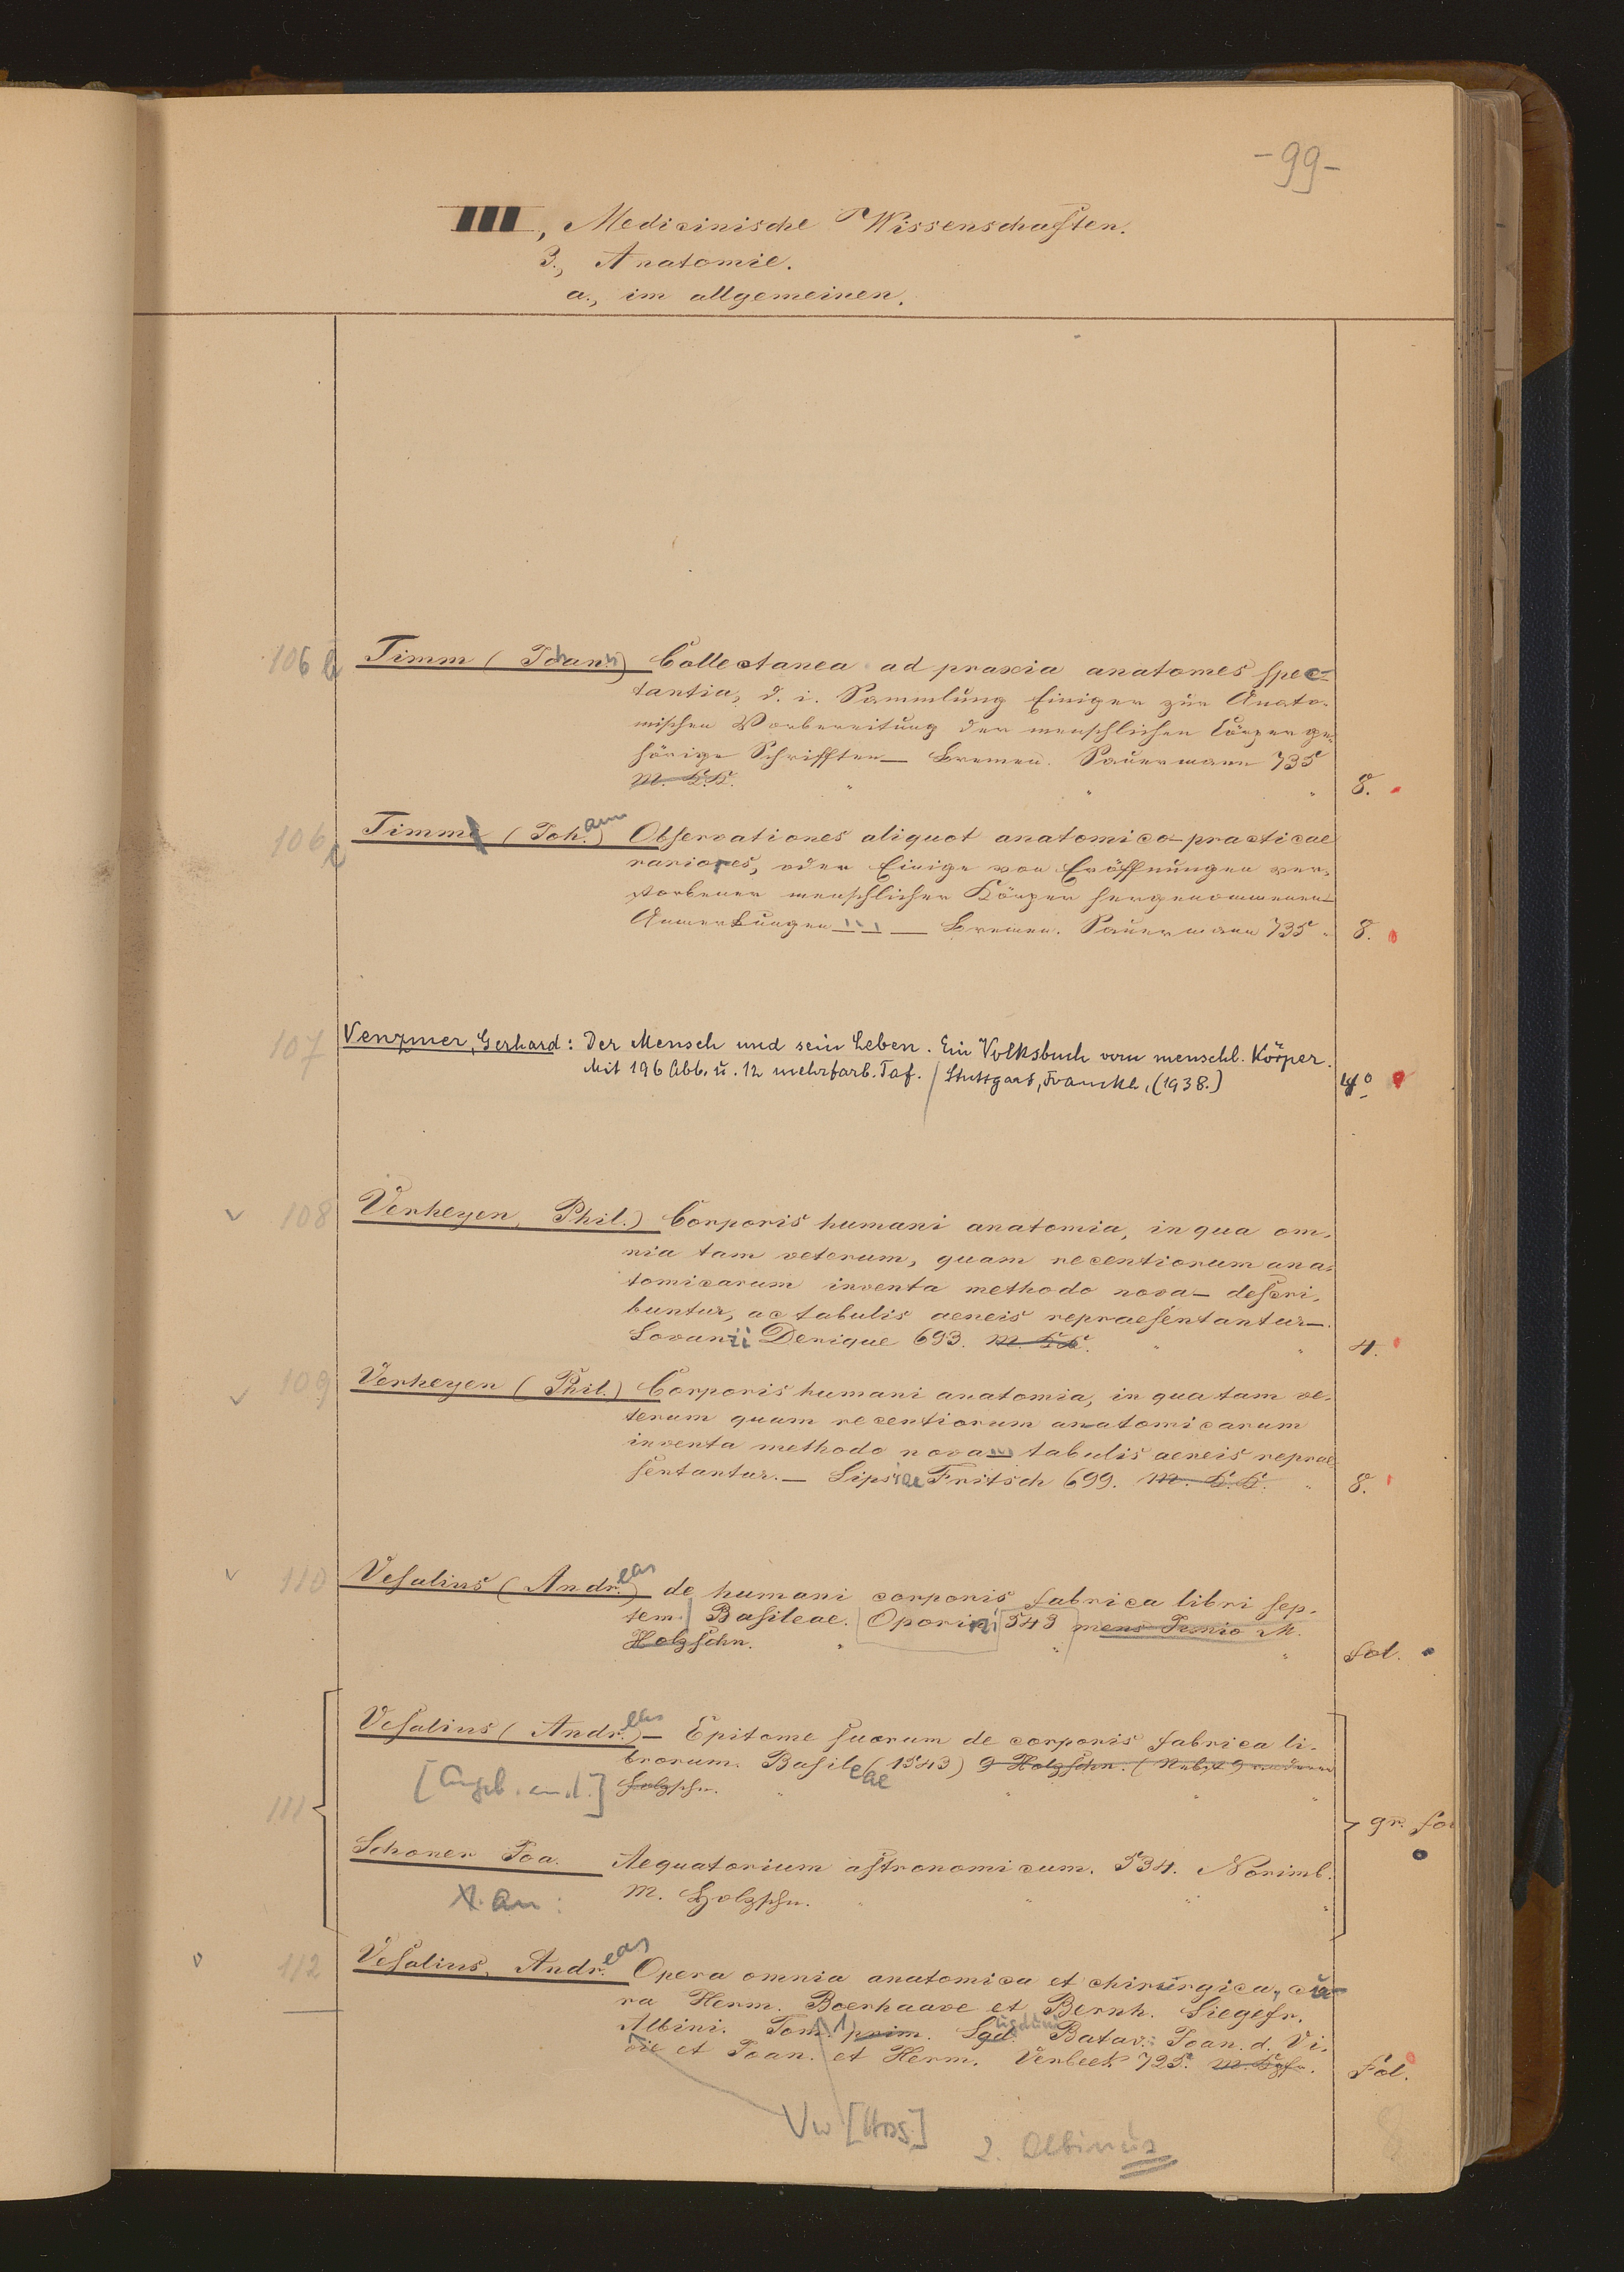 -99-
III, Medicinische Wissenschaften.
3., Anatomie.
a., im allgemeinen.
106 b Timm (Johann) Collectanea ad praxia anatomes spec-
tantia, d. i. Sammlung Einiger zur Anato-
mischen Vorbereitung der menschlichen Körper ge-
hörige Schrifften — Bremen. Saurmann 735
M. K.K. 8.
106 c Timm (Joh.ann) Observationes aliquot anatomico-practicae
rariores, oder Einige von Eröffnungen ver-
storbener menschlicher Körper hergenommenen
Anmerkungen ... — Bremen. Saurmann 735 8.
107 Venzmer, Gerhard: Der Mensch und sein Leben. Ein Volksbuch vom menschl. Körper.
Mit 196 Abb. u. 12 mehrfarb. Taf. / Stuttgart, Franckh, (1938.) 4°
108 Verheyen, Phil.) Corporis humani anatomia, in qua om-
nia tam veterum, quam recentiorum ana-
tomicarum inventa methodo nova — descri-
buntur, ac tabulis aeneis repraesentantur —.
Lovanii Denique 693. M. K.K. 4.
109 Verheyen (Phil.) Corporis humani anatomia, in qua tam ve-
terum quam recentiorum anatomicarum
inventa methodo nova ... tabulis aeneis reprae
sentantur. — Lipsiae Fritsch 699. M. K.K. 8.
110 Vesalius (Andr.eas) de humani corporis fabrica libri sep-
tem. Basileae. Oporini 543 mens Junio M.
Holzschn. fol.
111 Vesalius (Andr.eas) — Epitome suorum de corporis fabrica li-
brorum. Basileae (1543) 9 Holzschn. (Nebst 9 anderen
[Angeb. an d.] Holzschn. gr. fol
Schoner Joa. Aequatorium astronomicum. 534. Norimb.
X. an: M. Holzschn.
112 Vesalius, Andr.eas Opera omnia anatomica et chirurgica, cu-
ra Herm. Boerhaave et Bernh. Siegefr.
Albini. Tom. 1) prim. Lugduni Batav.: Joan. d. Vi-
vie et Joan. et Herm. Verbeek 725. M. Kpfr. Fol.
Vw [Hrsg]
2. Albinus